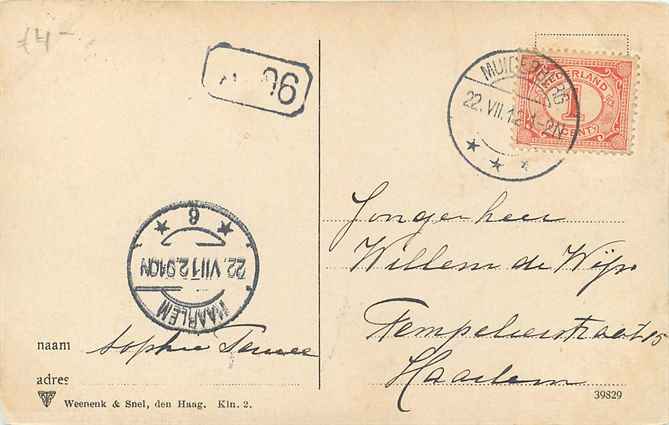 £4-
96
MUIDERBERG
22.VII.12.1-2N
NEDERLAND
1
CENT
Jongenheer
Willem de Wijs
Tempelierstraat 15
Haarlem
HAARLEM
22.VII12.9-10N
6
naam Sophie
adres
Weenenk & Snel, den Haag. Kln. 2.
39829